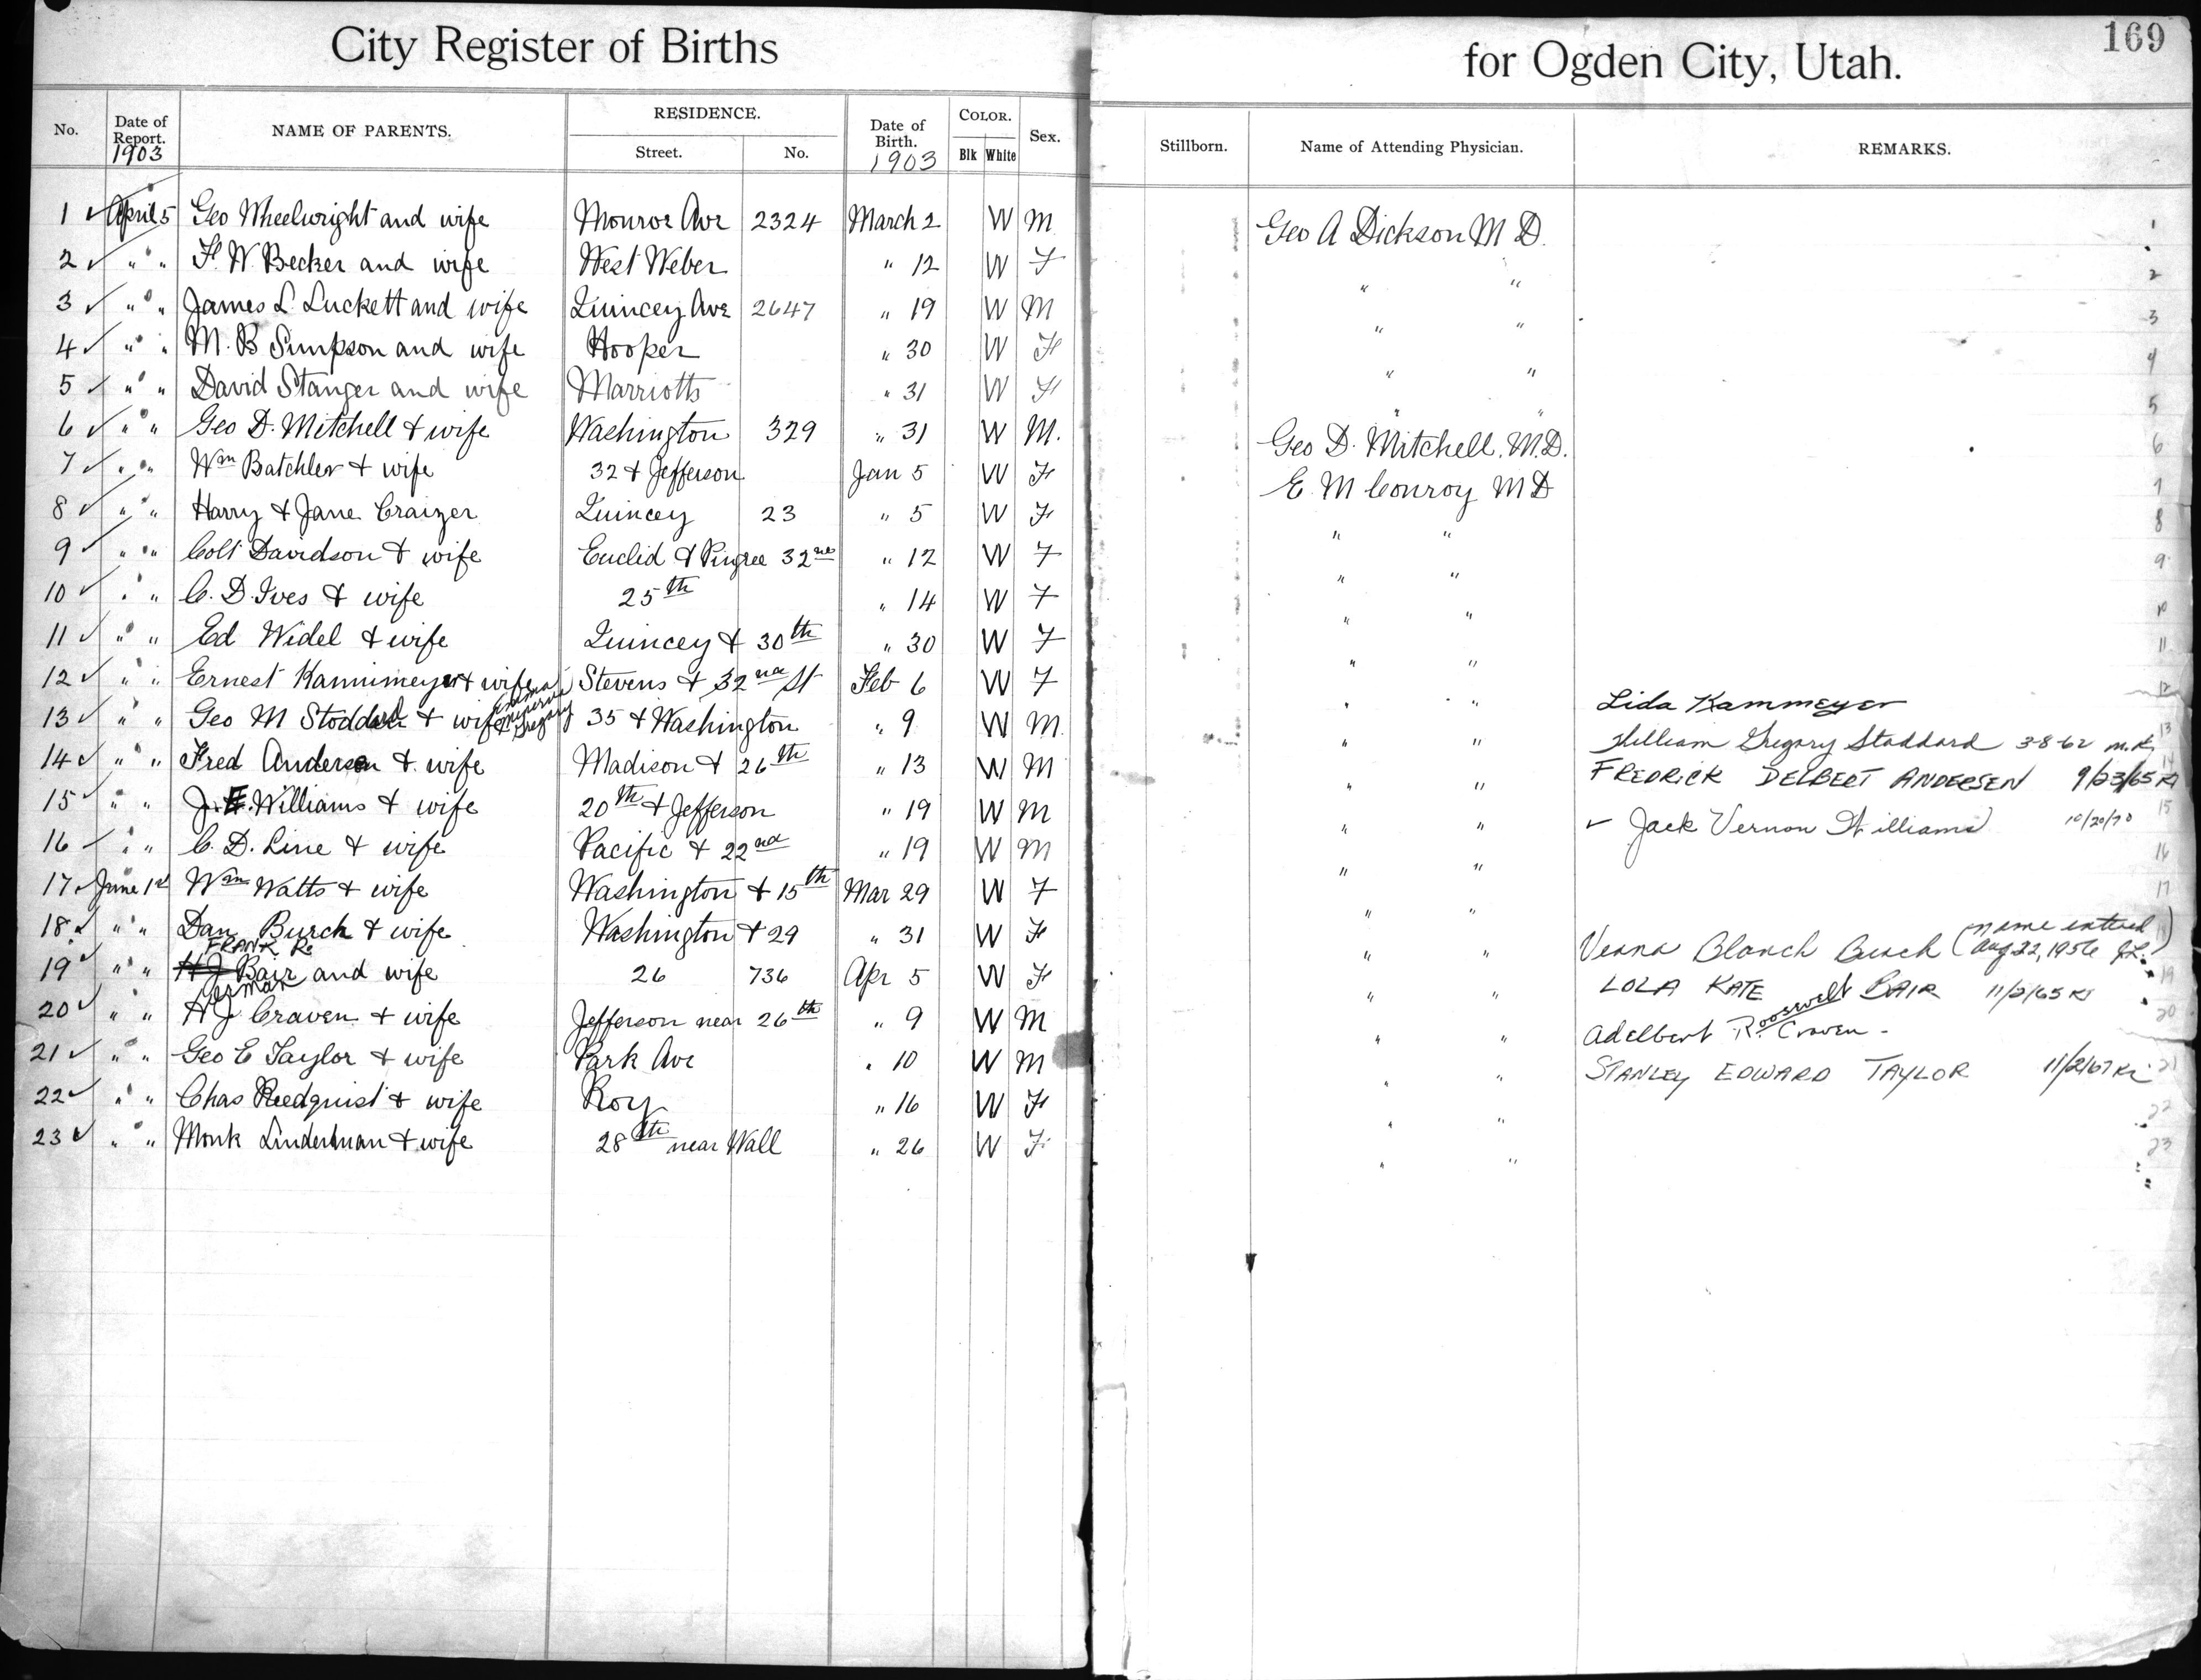 City Register of Births for Ogden City, Utah. 169
No. Date of Report. 1903 NAME OF PARENTS. RESIDENCE. Street. No. Date of Birth. 1903 COLOR. Blk White Sex. Stillborn. Name of Attending Physician. REMARKS.
1 ✓ April 5 Geo Wheelwright and wife Monroe Ave 2324 March 2 W M Geo A Dickson M D. 1
2 ✓ " " F. W. Becker and wife West Weber " 12 W F " " 2
3 ✓ " " James L. Luckett and wife Quincey Ave 2647 " 19 W M " " 3
4 ✓ " " M. B Simpson and wife Hooper " 30 W F " " 4
5 ✓ " " David Stanger and wife Marriotts " 31 W F " " 5
6 ✓ " " Geo D. Mitchell & wife Washington 329 " 31 W M. Geo D. Mitchell. M.D. 6
7 ✓ " " Wm Batchler & wife 32 & Jefferson Jan 5 W F E. M Conroy M D 7
8 ✓ " " Harry & Jane Craizer Quincey 23 " 5 W F " " 8
9 ✓ " " Colt Davidson & wife Euclid & Pingree 32nd " 12 W F " " 9
10 ✓ " " C. D. Ives & wife 25th " 14 W F " " 10
11 ✓ " " Ed Widel & wife Quincey & 30th " 30 W F " " 11
12 ✓ " " Ernest Kammmeyer & wife Stevens & 32nd St Feb 6 W F " " Lida Kammeyer 12
13 ✓ " " Geo M Stoddard & wife Emma Minerva Gregory 35 & Washington " 9 W M. " " William Gregory Stoddard 3-8-62 m.k. 13
14 ✓ " " Fred Andersen & wife Madison & 26th " 13 W M " " FREDRICK DELBERT ANDERSEN 9/23/65 Kr 14
15 ✓ " " J. E. Williams & wife 20th & Jefferson " 19 W M " " ✓ Jack Vernon Williams 10/20/70 15
16 ✓ " " C. D. Line & wife Pacific & 22nd " 19 W M " " 16
17 ✓ June 1st Wm Watts & wife Washington & 15th Mar 29 W F " " 17
18 ✓ " " Dan Burch & wife Washington & 29 " 31 W F " " Verna Blanch Burch (name entered Aug 22, 1956 J.L.)
19 ✓ " " H J FRANK R. Bair and wife 26 736 Apr 5 W F " " LOLA KATE BAIR 11/2/65 Kr 19
20 ✓ " " H J Craven & wife Jefferson near 26th " 9 W M " " Adelbert R. Roosevelt Craven - 20
21 ✓ " " Geo E Taylor & wife Park Ave " 10 W M " " STANLEY EDWARD TAYLOR 11/2/67 Kr 21
22 ✓ " " Chas Reedquist & wife Roy " 16 W F " " 22
23 ✓ " " Monk Linderman & wife 28th near Wall " 26 W F " " 23